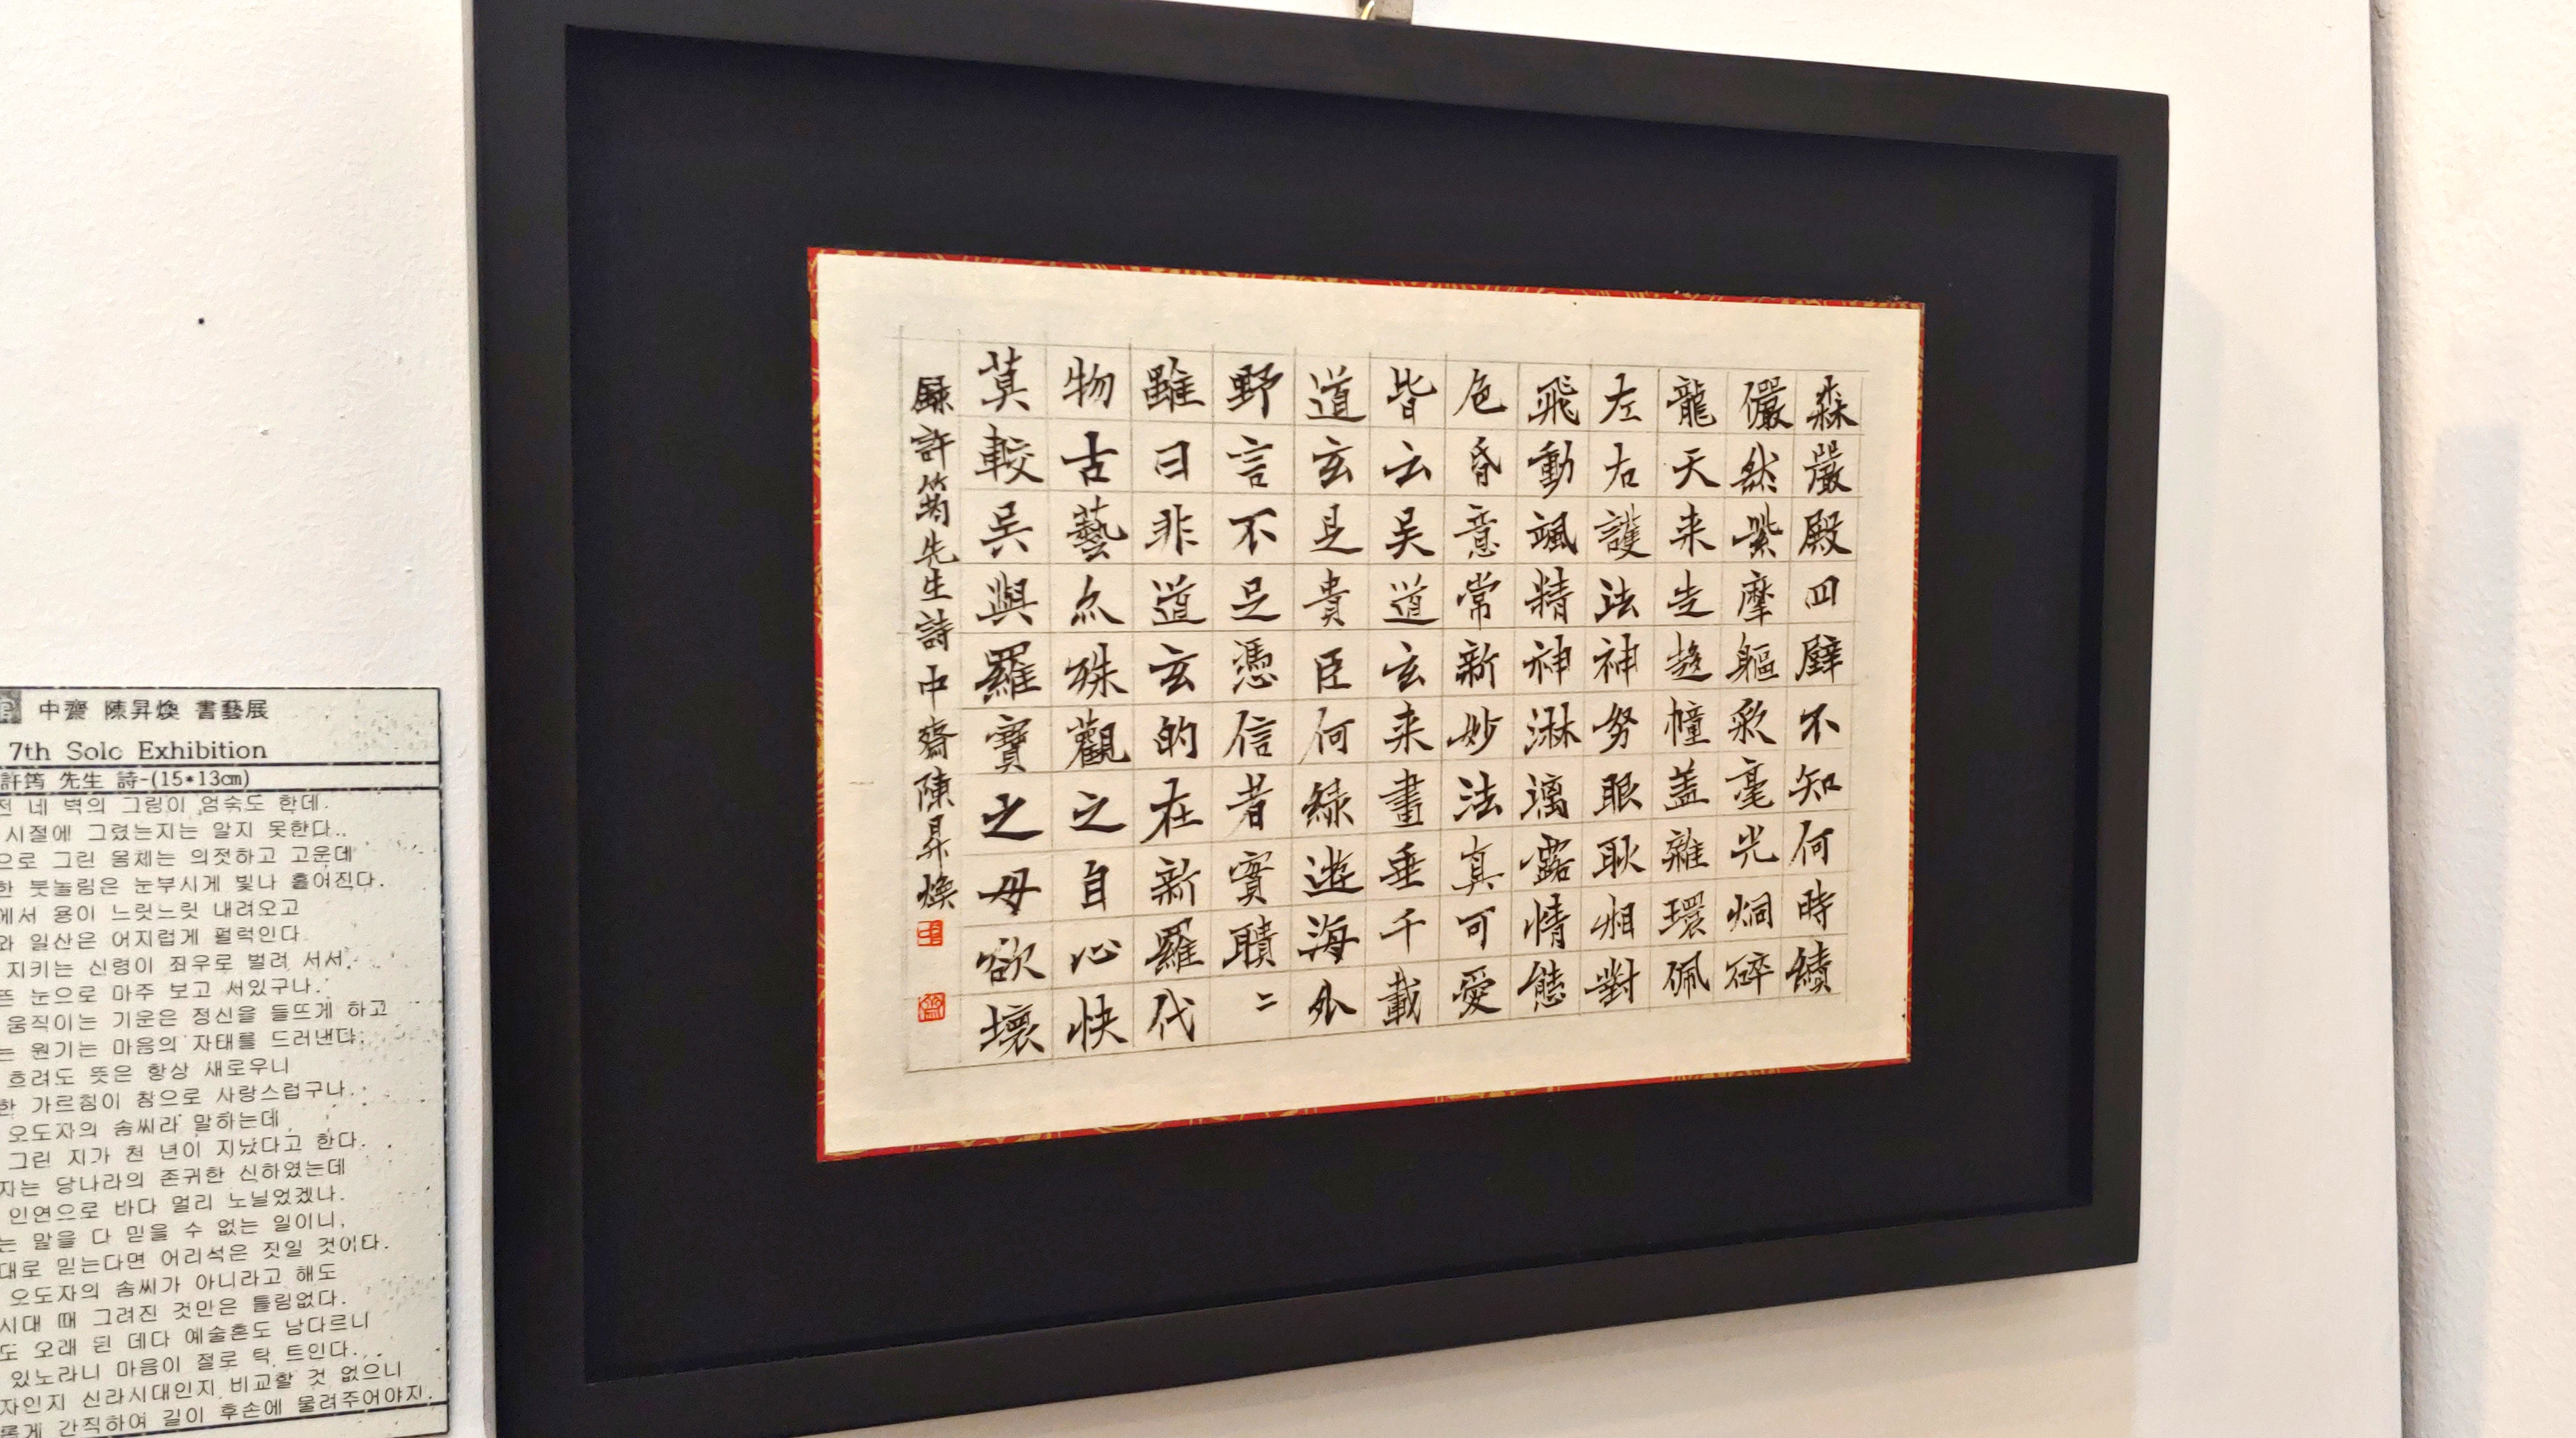 中齋 陳昇煥 書藝展
7th Solo Exhibition
許筠 先生 詩-(15*13㎝)
네 벽의 그림이 엄숙도 한데.
시절에 그렸는지는 알지 못한다.
으로 그린 몸체는 의젓하고 고운데
한 붓놀림은 눈부시게 빛나 흩어진다.
에서 용이 느릿느릿 내려오고
와 일산은 어지럽게 펄럭인다.
지키는 신령이 좌우로 벌려 서서.
뜬 눈으로 마주 보고 서있구나.
움직이는 기운은 정신을 들뜨게 하고
는 원기는 마음의 자태를 드러낸다.
흐려도 뜻은 항상 새로우니
한 가르침이 참으로 사랑스럽구나.
오도자의 솜씨라 말하는데
그린 지가 천 년이 지났다고 한다.
자는 당나라의 존귀한 신하였는데
인연으로 바다 멀리 노닐었겠나.
는 말을 다 믿을 수 없는 일이니.
대로 믿는다면 어리석은 짓일 것이다.
오도자의 솜씨가 아니라고 해도
시대 때 그려진 것만은 틀림없다.
도 오래 된 데다 예술혼도 남다르니
있노라니 마음이 절로 탁 트인다.
자인지 신라시대인지 비교할 것 없으니
롭게 간직하여 길이 후손에 물려주어야지.
森嚴殿四壁不知何時繢
儼然紫摩軀彩毫光炯碎
龍天来告趍幢盖雜環佩
左右護法神努眼耿相對
飛動颯精神淋漓露情態
色昏意常新妙法真可愛
皆云吴道玄来畫垂千載
道玄是貴臣何緑遊海外
野言不足憑信者實聵〻
雖曰非道玄的在新羅代
物古藝亦殊觀之自心快
莫較吴與羅寶之毋欲壞
録許筠先生詩中齋陳昇煥